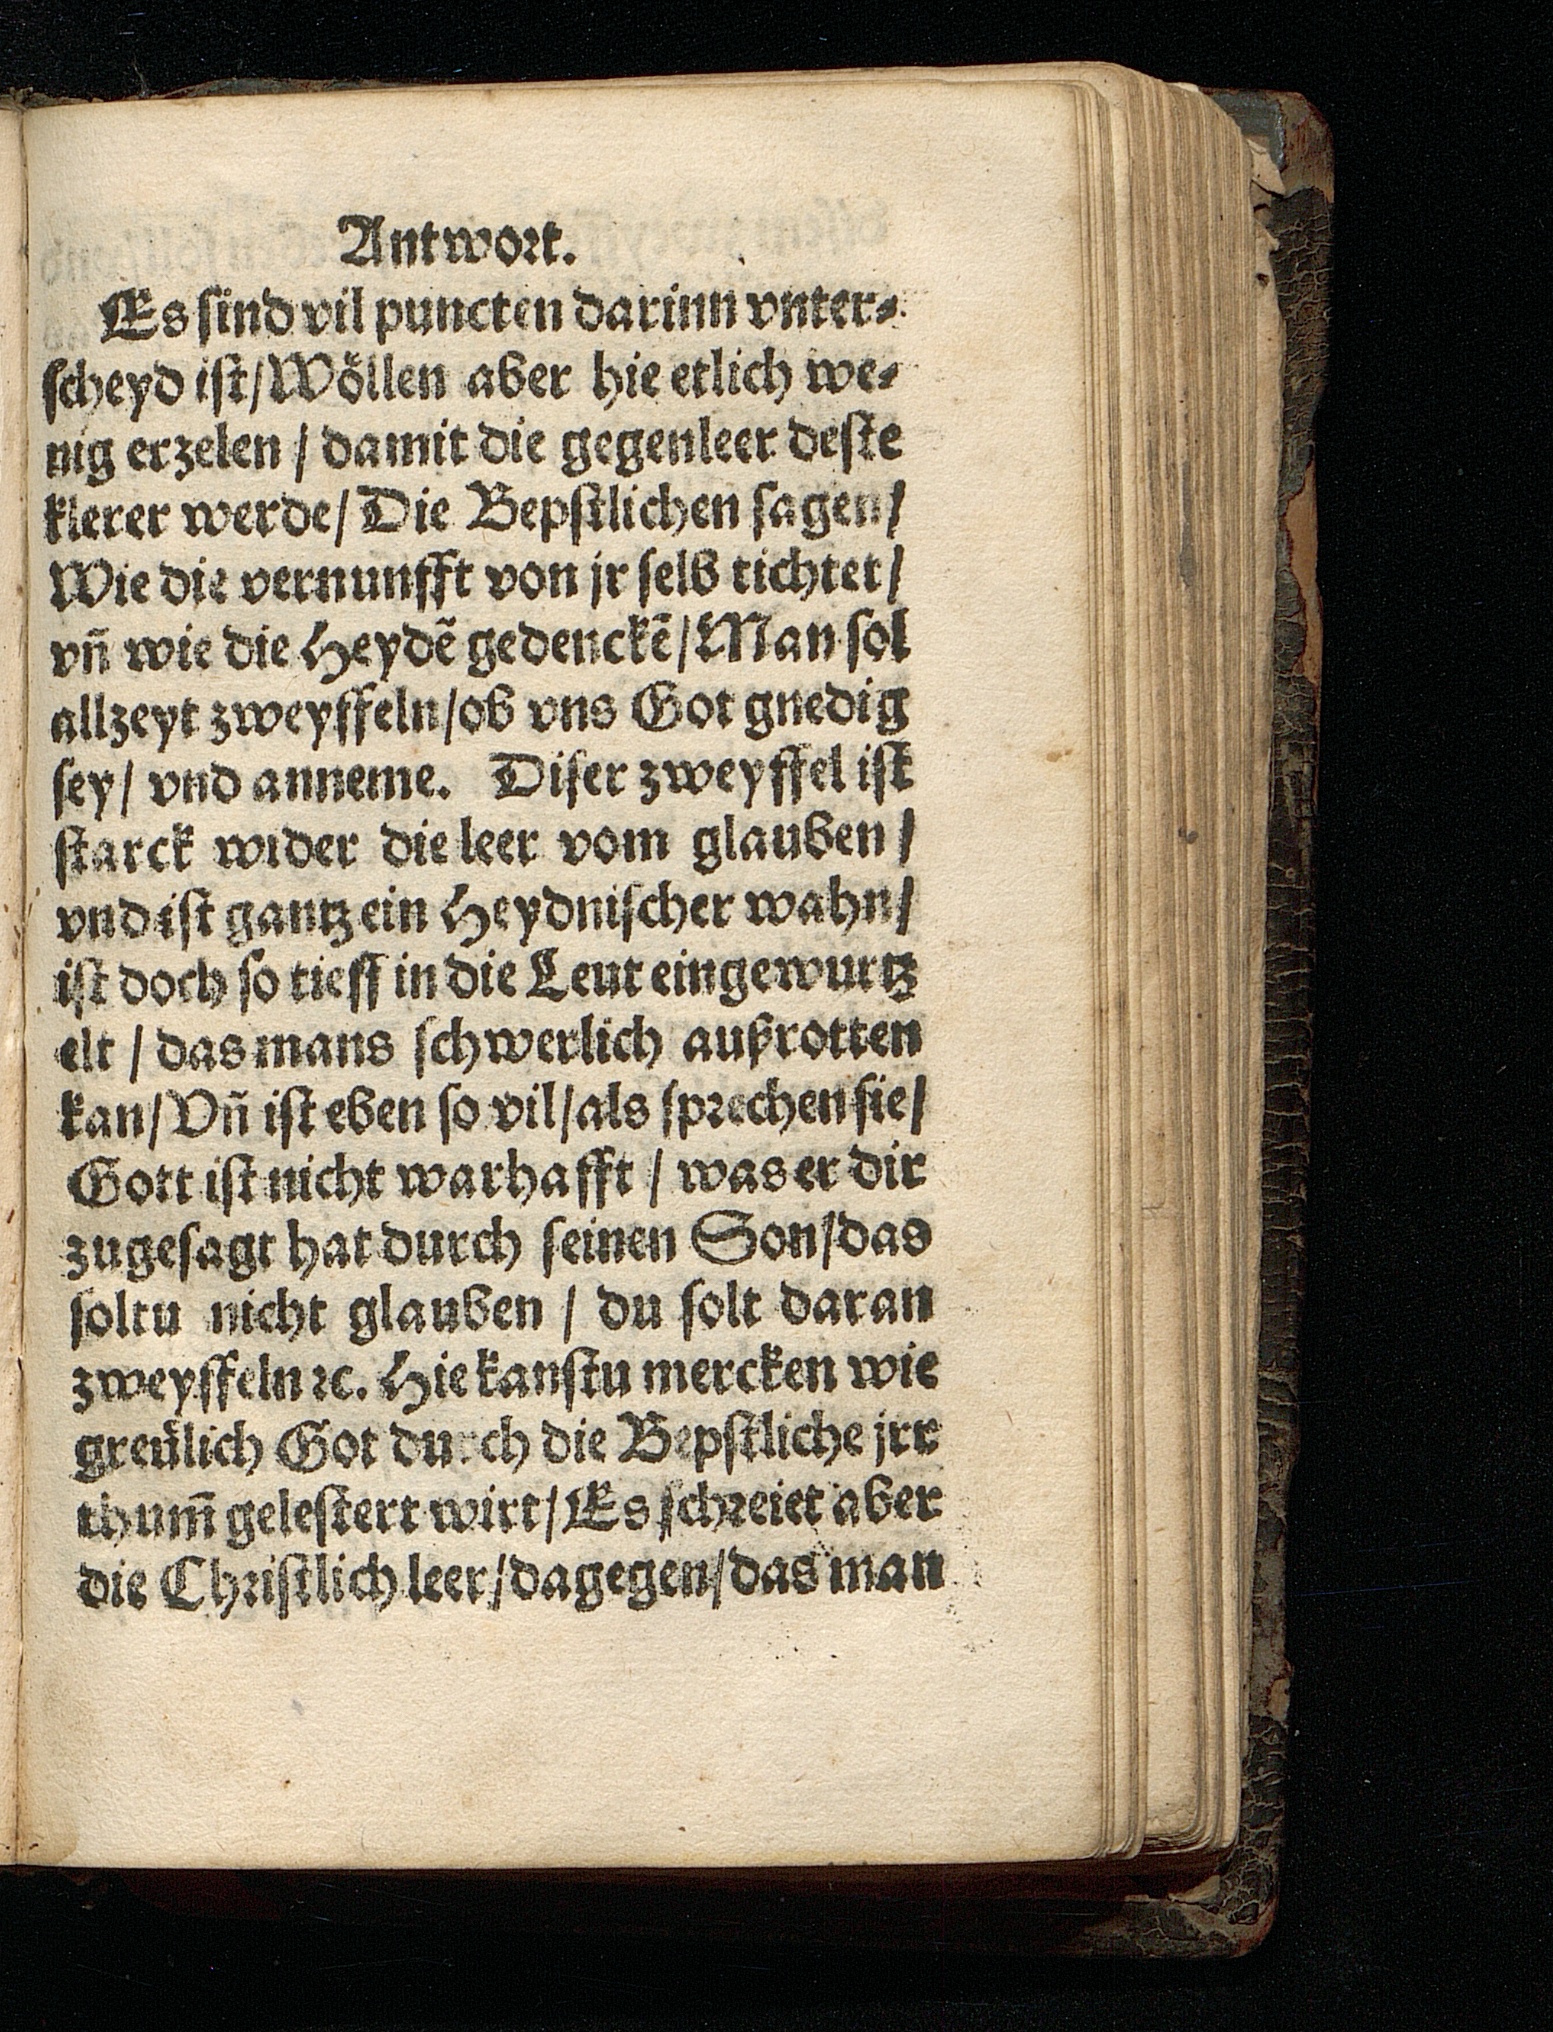 Antwort.
Es sind vil puncten darinn vnter⸗
scheyd ist/Wöllen aber hie etlich we⸗
nig erzelen / damit die gegenleer deste
klerer werde/ Die Bepstlichen sagen/
Wie die vernunfft von jr selb tichtet/
vñ wie die Heydẽ gedenckẽ/Man sol
allzeyt zweyffeln/ob vns Got gnedig
sey/ vnd anneme. Diser zweyffel ist
starck wider die leer vom glauben/
vnd ist gantz ein Heydnischer wahn/
ist doch so tieff in die Leut eingewurtz
elt / das mans schwerlich außrotten
kan/Vñ ist eben so vil/als sprechen sie/
Gott ist nicht warhafft / was er dir
zugesagt hat durch seinen Son/das
soltu nicht glauben / du solt daran
zweyffeln ꝛc. Hie kanstu mercken wie
greülich Got durch die Bepstliche jrr
thum̃ gelestert wirt/Es schreiet aber
die Christlich leer/dagegen/das man